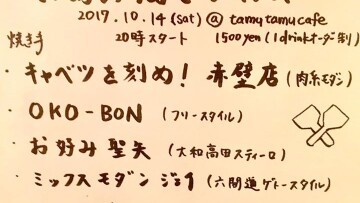 2017.10.14 (sat) @ tamutamucafe
焼き手 20時スタート 1500yen (1drinkオーダー制)
・キャベツを刻め! 赤壁店 (肉系モダン)
・OKO-BON (フリースタイル)
・お好み聖矢 (大和高田スティーロ)
・ミックスモダン ジェイ (六間道ゲトースタイル)